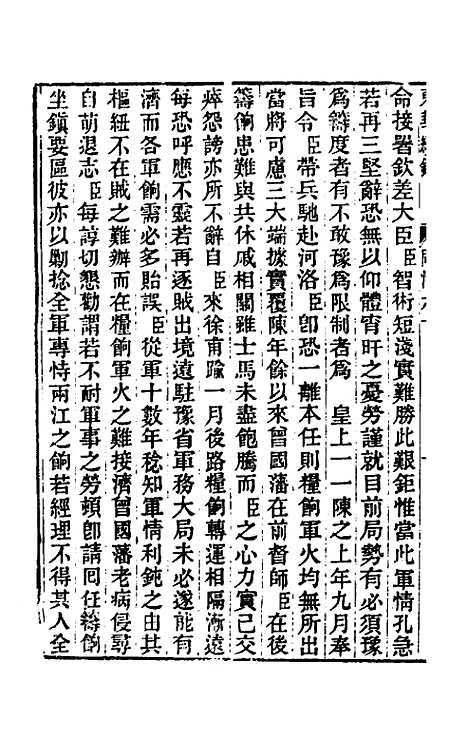 命接署欽差大臣臣智術短淺實難勝此艱鉅惟當此軍情孔急
若再三堅辭恐無以仰體宵旰之憂勞謹就目前局勢有必須豫
爲籌度者有不敢豫爲限制者爲 皇上一一陳之上年九月奉
旨令臣帶兵馳赴河洛臣卽恐一離本任則糧餉軍火均無所出
當將可慮三大端據實覆陳年餘以來曾國藩在前督師臣在後
籌餉患難與共休戚相關雖士馬未盡飽騰而臣之心力實已交
瘁怨謗亦所不辭自臣來徐甫踰一月後路糧餉轉運相隔漸遠
每恐呼應不靈若再逐賊出境遠駐豫省軍務大局未必遂能有
濟而各軍餉需必多貽誤臣從軍十數年稔知軍情利鈍之由其
樞紐不在賊之難辦而在糧餉軍火之難接濟曾國藩老病侵尋
自萌退志臣每諄切懇勸謂若不耐軍事之勞頓卽請囘任籌餉
坐鎭要區彼亦以勦捻全軍專恃兩江之餉若經理不得其人全